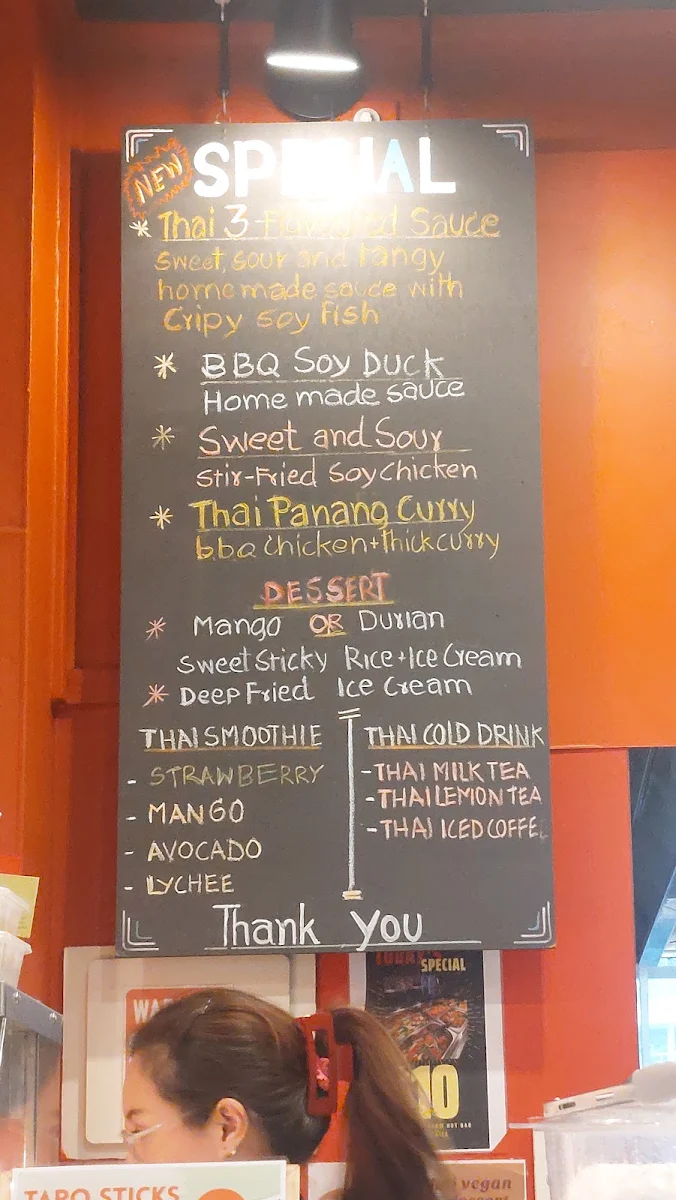 NEW
SPECIAL
* Thai 3-Flavored Sauce
Sweet, sour and tangy
home made sauce with
Cripy soy fish
* BBQ Soy Duck
Home made sauce
* Sweet and Sour
Stir-Fried Soy Chicken
* Thai Panang Curry
bbq chicken+thick curry
DESSERT
* Mango OR Durian
Sweet Sticky Rice+Ice Cream
* Deep Fried Ice Cream
THAI SMOOTHIE
- STRAWBERRY
- MANGO
- AVOCADO
- LYCHEE
THAI COLD DRINK
- THAI MILK TEA
- THAI LEMON TEA
- THAI ICED COFFE
Thank you
TODAY'S
SPECIAL
HOT BAR
vegan
TARO STICKS